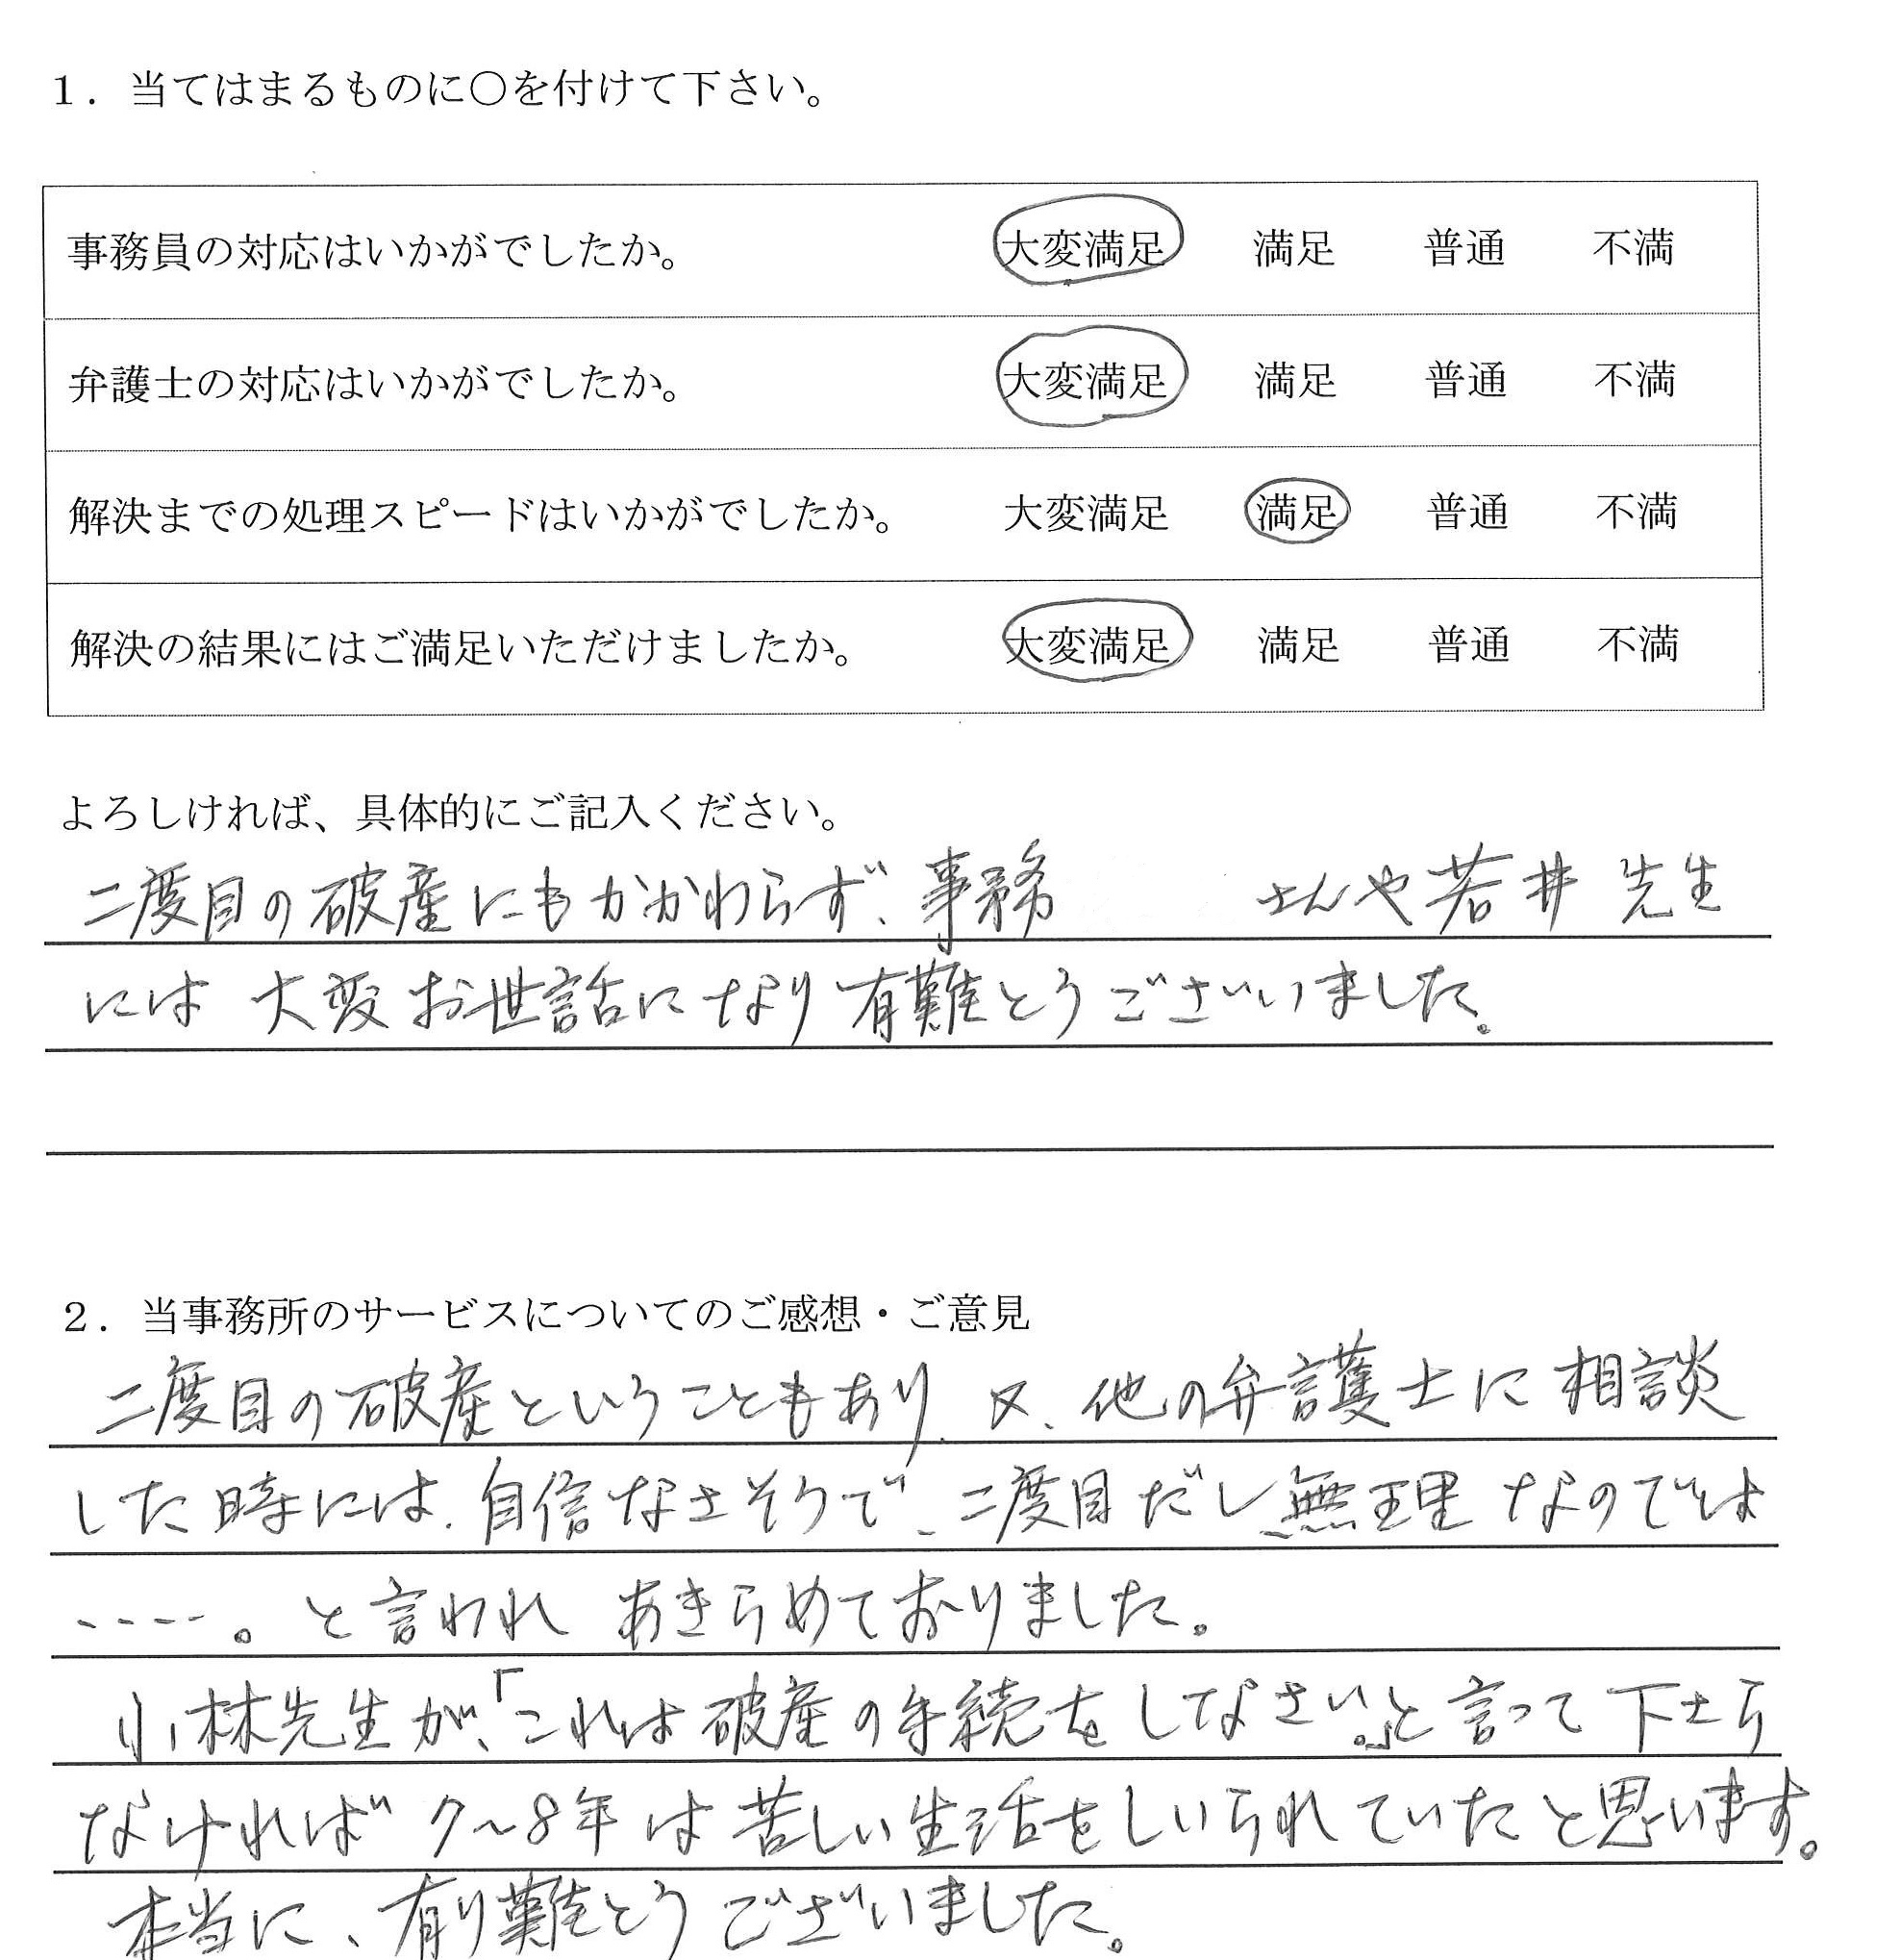 １．当てはまるものに○を付けて下さい。
事務員の対応はいかがでしたか。 大変満足 満足 普通 不満
弁護士の対応はいかがでしたか。 大変満足 満足 普通 不満
解決までの処理スピードはいかがでしたか。 大変満足 満足 普通 不満
解決の結果にはご満足いただけましたか。 大変満足 満足 普通 不満
よろしければ、具体的にご記入ください。
二度目の破産にもかかわらず、事務 さんや若井先生
には大変お世話になり有難とうございました。
２．当事務所のサービスについてのご感想・ご意見
二度目の破産ということもあり、又、他の弁護士に相談
した時には、自信なさそうで、二度目だし無理なのでは
‥‥。と言われあきらめておりました。
小林先生が、「これは破産の手続をしなさい。」と言って下さら
なければ7～8年は苦しい生活をしいられていたと思います。
本当に、有り難とうございました。